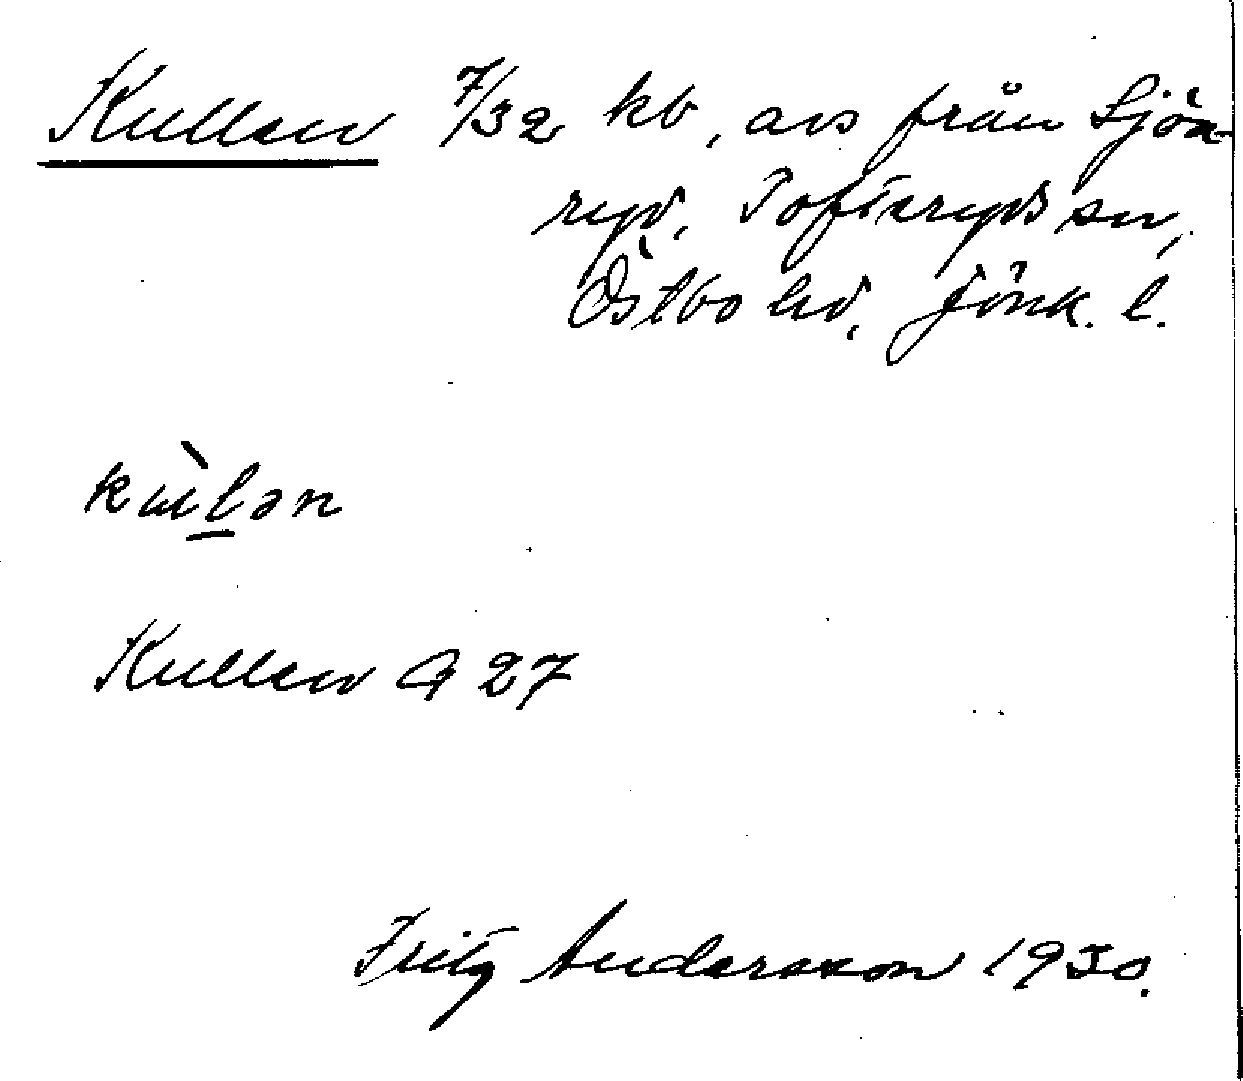 Kullen 7/32 kb, avs från Sjöa-
ryd, Tofteryds sn,
Östbo hd, Jönk. l.
kɯ̀lən
Kullen G 27
Fritz Andersson 1930.